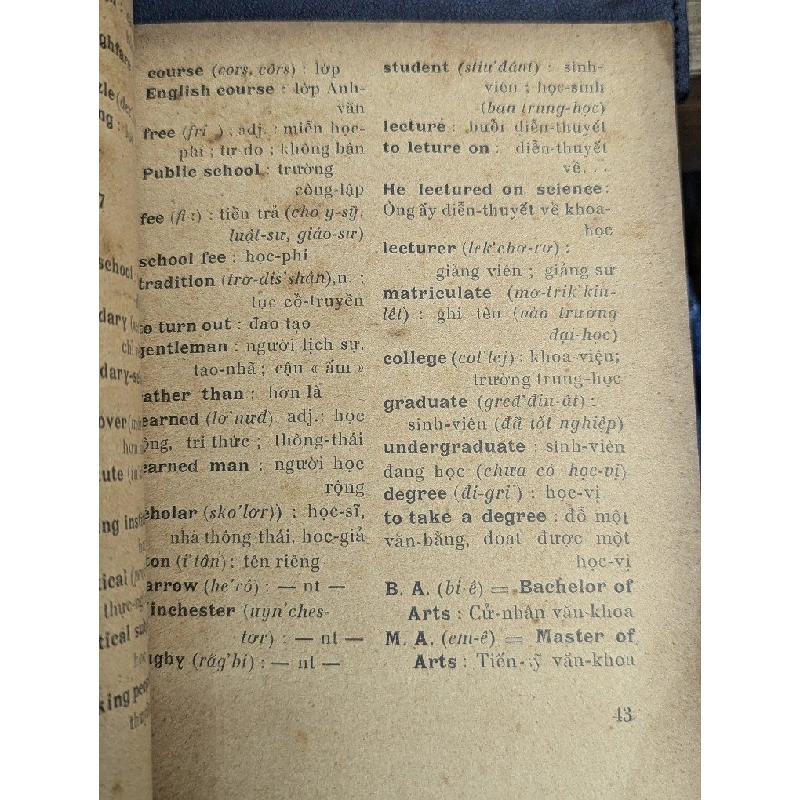 course (cors, côrs) : lớp
English course : lớp Anh-
văn
free (fri ) : adj. : miễn học-
phí ; tự do ; không bận
Public school : trường
công-lập
fee (fi :) : tiền trả (cho y-sỹ,
luật-sư, giáo-sư)
school fee : học-phí
tradition (trơ-dis'shân),n. :
tục cổ-truyền
to turn out : đào tạo
gentleman : người lịch sự,
tao-nhã ; cậu « ấm »
ather than : hơn là
earned adj. : học
rộng, tri thức ; thông-thái
earned man : người học
rộng
cholar (sko'lơr)) : học-sĩ,
nhà thông thái, học-giả
ton (i'tân) : tên riêng
arrow (he'rô) : — nt —
inchester (uyn'ches-
tơr) : — nt —
ugby (răg'bi) : — nt —
student (stiu'đânt) : sinh-
viên ; học-sinh
(ban trung-học)
lecture : buổi diễn-thuyết
to leture on : diễn-thuyết
về. . .
He lectured on science :
Ông ấy diễn-thuyết về khoa-
học
lecturer (lek'chơ-rơ) :
giảng viên ; giảng sư
matriculate (mơ-trik'kiu-
lêt) : ghi tên (vào trường
đại-học)
college (col'lej) : khoa-viện;
trường trung-học
graduate (gred'điu-ât) :
sinh-viên (đã tốt nghiệp)
undergraduate : sinh-viên
đang học (chưa có học-vị)
degree (đi-gri') : học-vị
to take a degree : đỗ một
văn-bằng, đoạt được một
học-vị
B. A. (bi-ê) = Bachelor of
Arts : Cử-nhân văn-khoa
M. A. (em-ê) = Master of
Arts : Tiến-sỹ văn-khoa
43